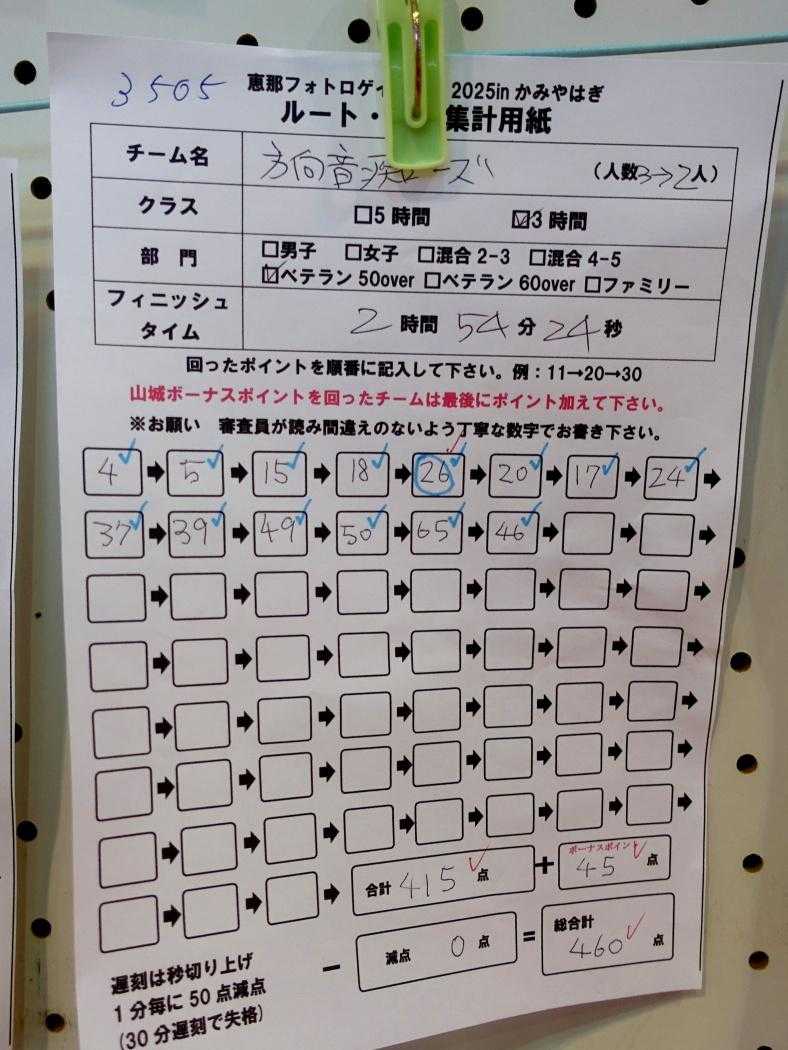 3505 恵那フォトロゲイ 2025in かみやはぎ
ルート・ 集計用紙
チーム名 方向音 ーズ (人数3→2人)
クラス □5 時間 ☑3 時間
部 門 □男子 □女子 □混合 2-3 □混合 4-5
☑ベテラン 50over □ベテラン 60over □ファミリー
フィニッシュ
タイム 2 時間 54 分 24 秒
回ったポイントを順番に記入して下さい。例：11→20→30
山城ボーナスポイントを回ったチームは最後にポイント加えて下さい。
※お願い 審査員が読み間違えのないよう丁寧な数字でお書き下さい。
4 → 5 → 15 → 18 → 26 → 20 → 17 → 24 →
37 → 39 → 49 → 50 → 65 → 46 → →
ボーナスポイント
合計 415 点 + 45 点
総合計
− 減点 0 点 = 460 点
遅刻は秒切り上げ
1 分毎に 50 点減点
(30 分遅刻で失格)